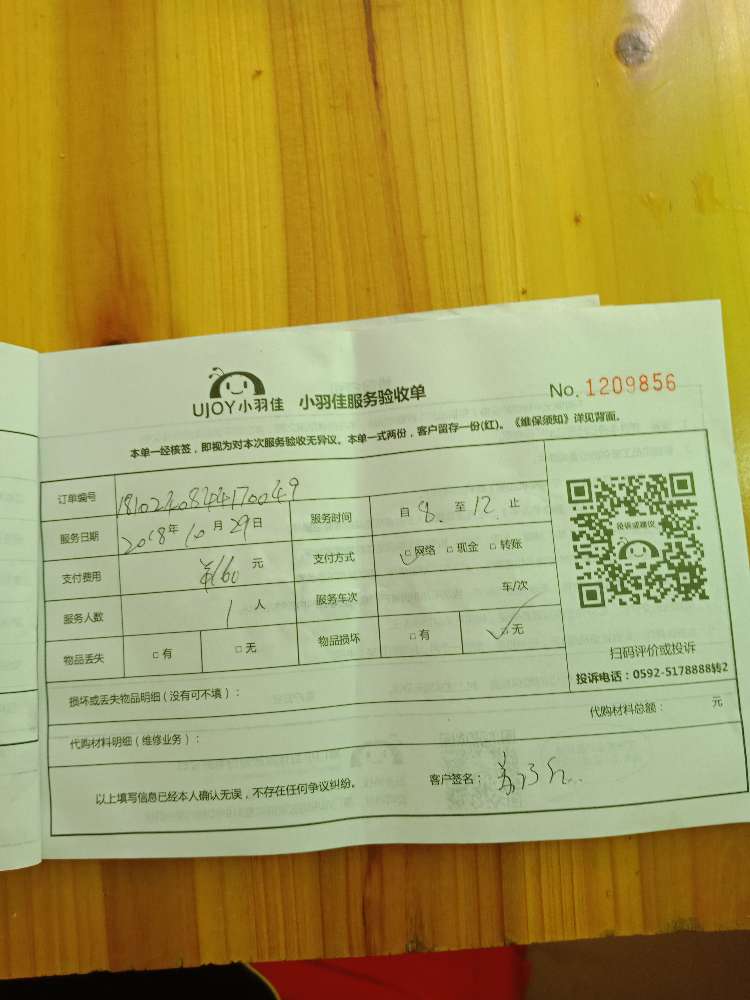 UJOY小羽佳 小羽佳服务验收单 No. 1209856
本单一经核签，即视为对本次服务验收无异议。本单一式两份，客户留存一份(红)。《维保须知》详见背面。
订单编号
服务日期 2018年10月29日 服务时间 自 8 至 12 止
支付费用 ¥160 元 支付方式 □网络 □现金 □转账
服务人数 1 人 服务车次 车/次
物品丢失 □有 □无 物品损坏 □有 □无
投诉或建议
扫码评价或投诉
投诉电话：0592-5178888转2
损坏或丢失物品明细（没有可不填）：
代购材料明细（维修业务）： 代购材料总额： 元
以上填写信息已经本人确认无误，不存在任何争议纠纷。 客户签名：